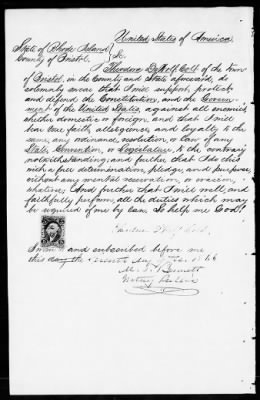 United States of America.
State of Rhode Island }
County of Bristol. } Ss.
I Theodore DeWolf Colt of the Town
of Bristol, in the County and State aforesaid, do
solemnly swear that I will support, protect
and defend the Constitution, and the Govern-
ment of the United States, against all enemies
whether domestic or foreign, and that I will
bear true faith, allegiance, and loyalty to the
same, any ordinance, resolution or law of any
State, Convention, or Legislature to the contrary
notwithstanding; and further that I do this
with a full determination, pledge, and purpose,
without any mental reservation, or evasion,
whatever; And further that I will well, and
faithfully perform, all the duties which may
be required of me by law. So help me God!
Theodore DWolf Colt.
Sworn and subscribed before me
this day the
Bennett
Notary Public